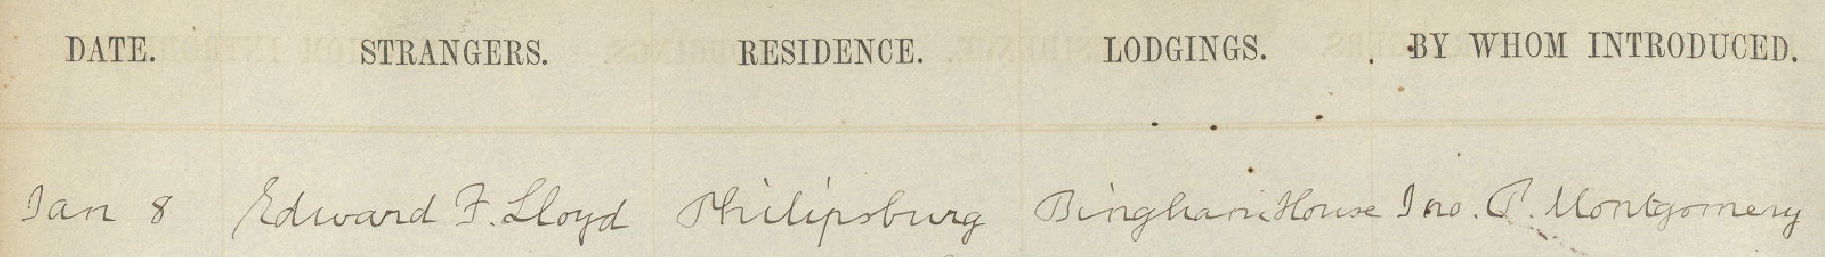 DATE. STRANGERS. RESIDENCE. LODGINGS. BY WHOM INTRODUCED.
Jan 8 Edward F. Lloyd Philipsburg Bingham House Jno. P. Montgomery